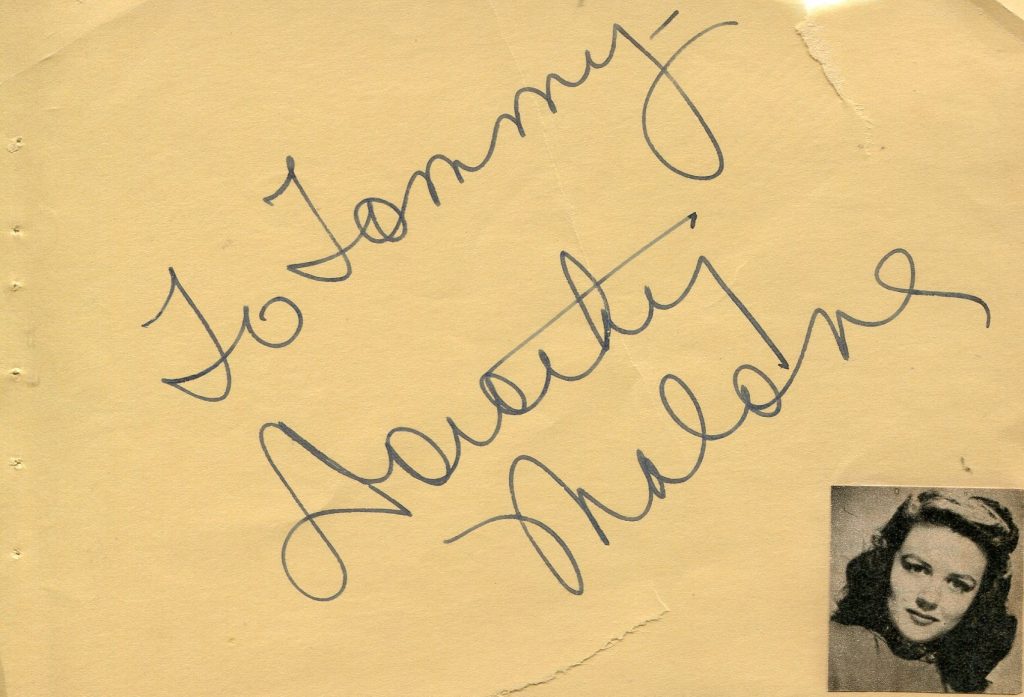 To Tommy-
Dorothy
Malone